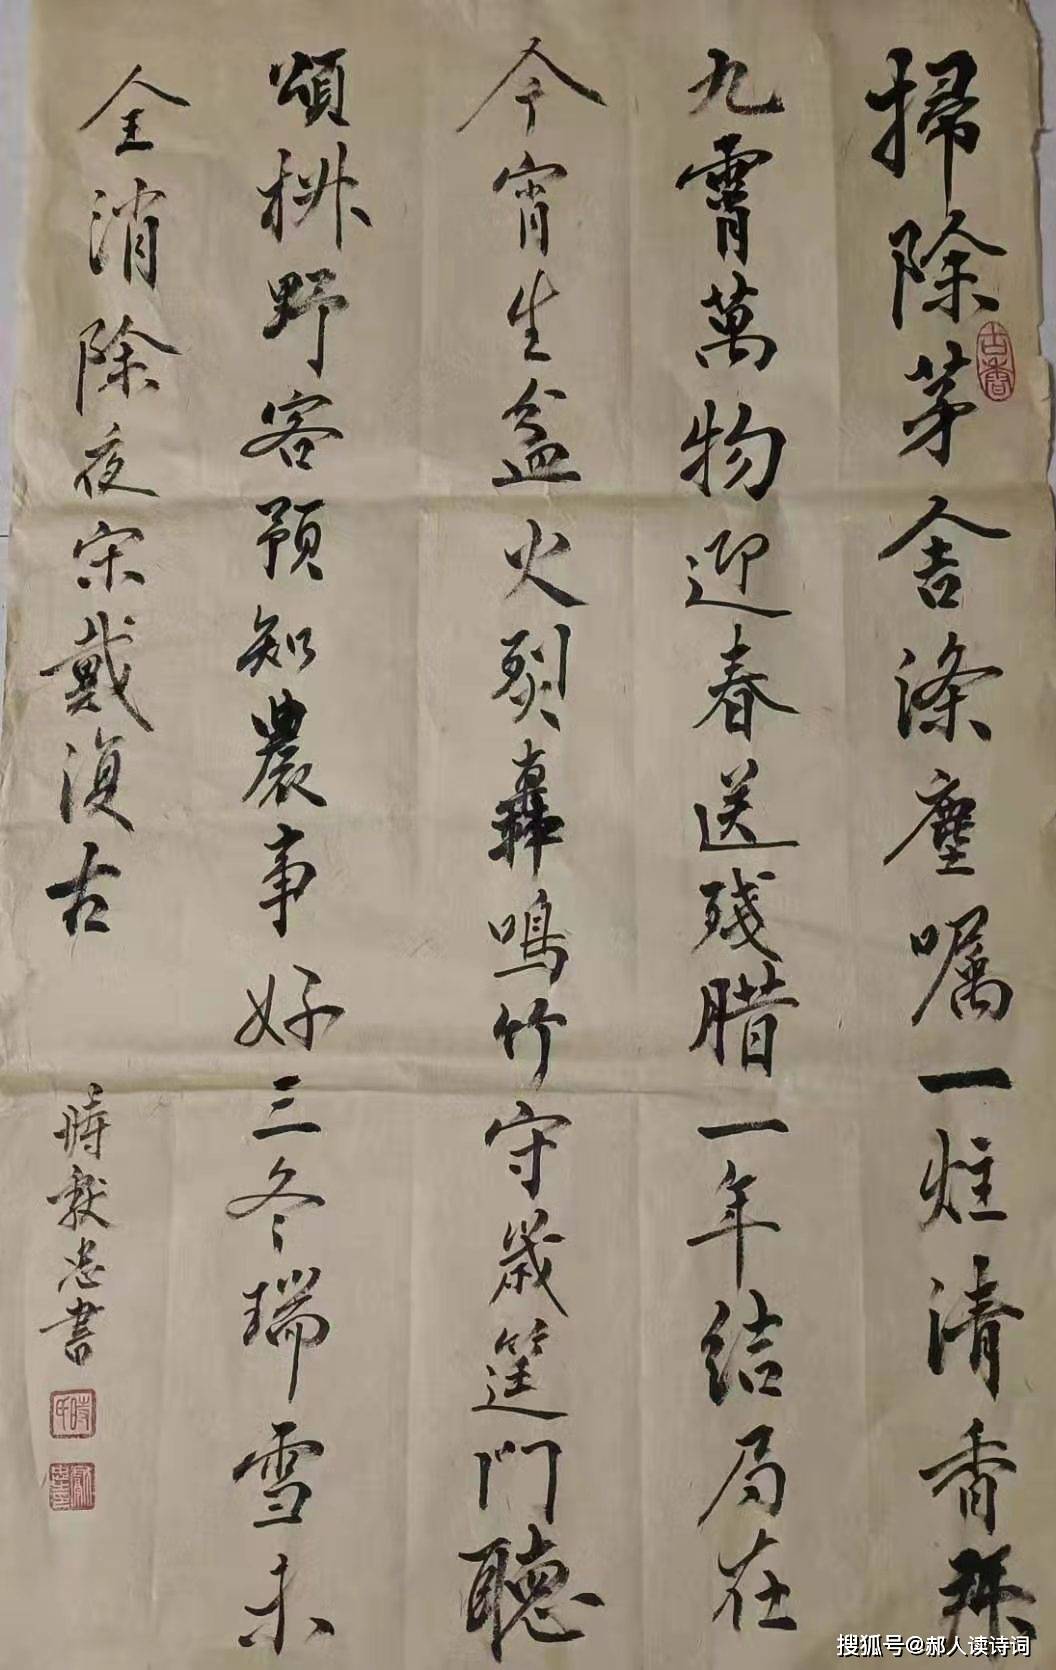 掃除茅舍滌塵囑一炷清香拜
九霄萬物迎春送残腊一年結局在
今宵生盆火烈轟鳴竹守歲筵門聽
頌椒野客預知農事好三冬瑞雪未
全消除夜宋戴復古
時獻忠書
古香
搜狐号@郝人读诗词